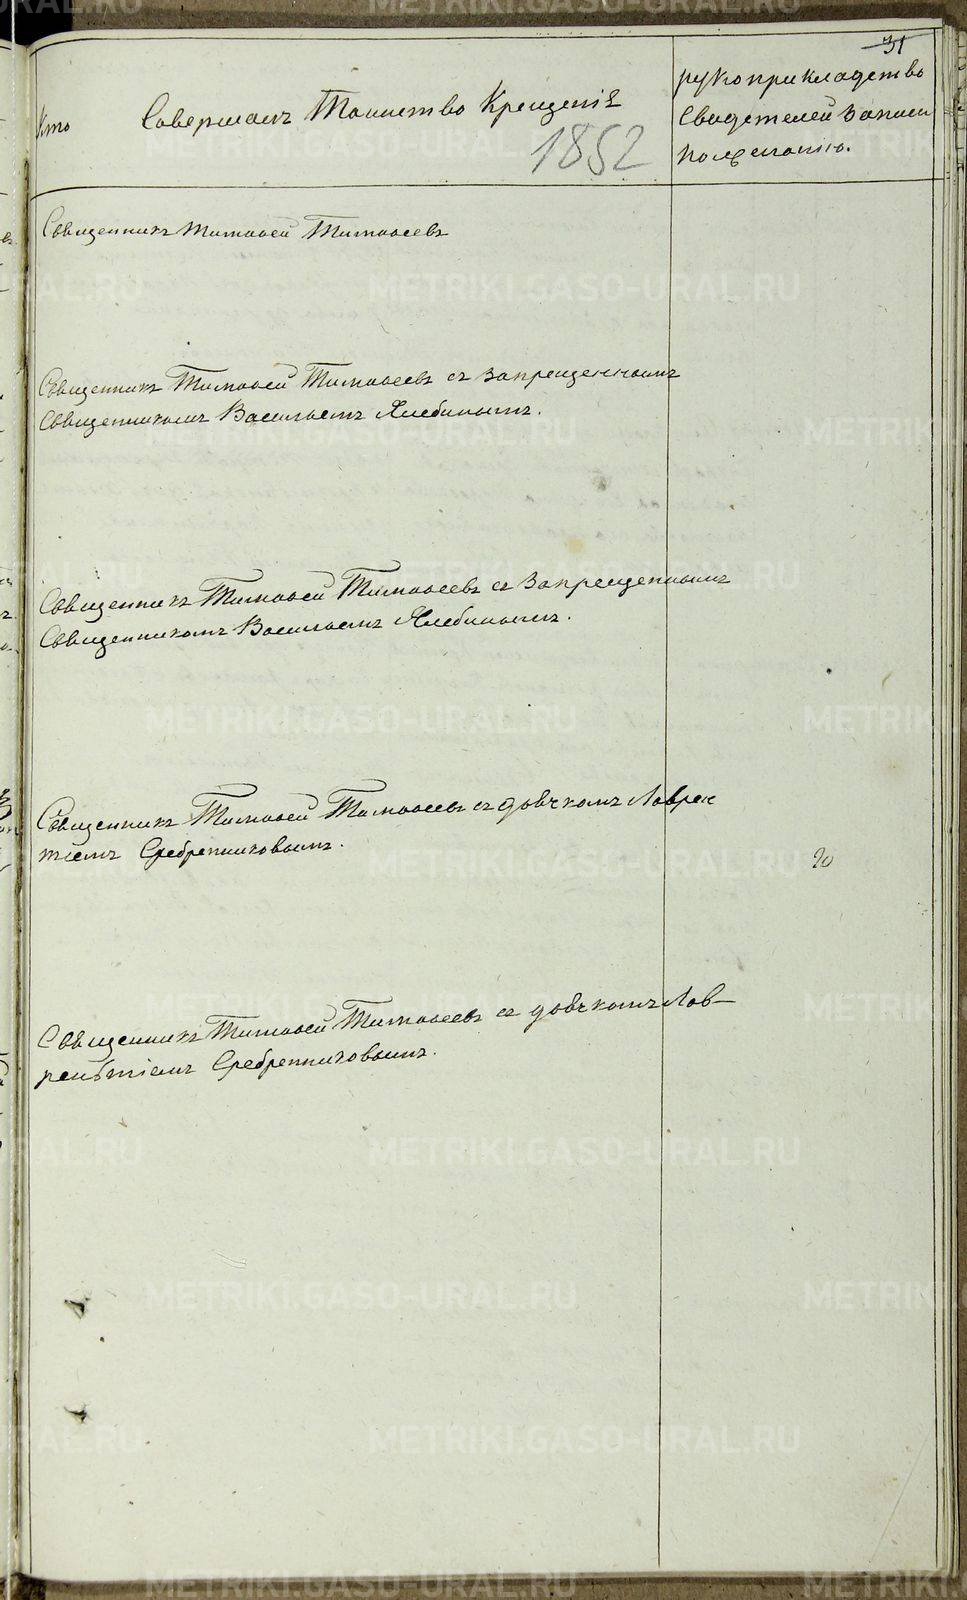 31
Кто Совершалъ Таинство Крещенія
1852
рукоприкладство
Свидетелей записи
по желанію.
Священникъ Тимофей Тимофеевъ
Священникъ Тимофей Тимофеевъ съ запрещеннымъ
Священникомъ Васильемъ Хлебинымъ.
Священникъ Тимофей Тимофеевъ съ Запрещеннымъ
Священникомъ Васильемъ Хлебинымъ.
Священникъ Тимофей Тимофеевъ съ дьячкомъ Лаврен
тіемъ Сребренниковымъ.
20
Священникъ Тимофей Тимофеевъ съ дьячкомъ Лав-
рентіемъ Сребренниковымъ.
METRIKI.GASO-URAL.RU